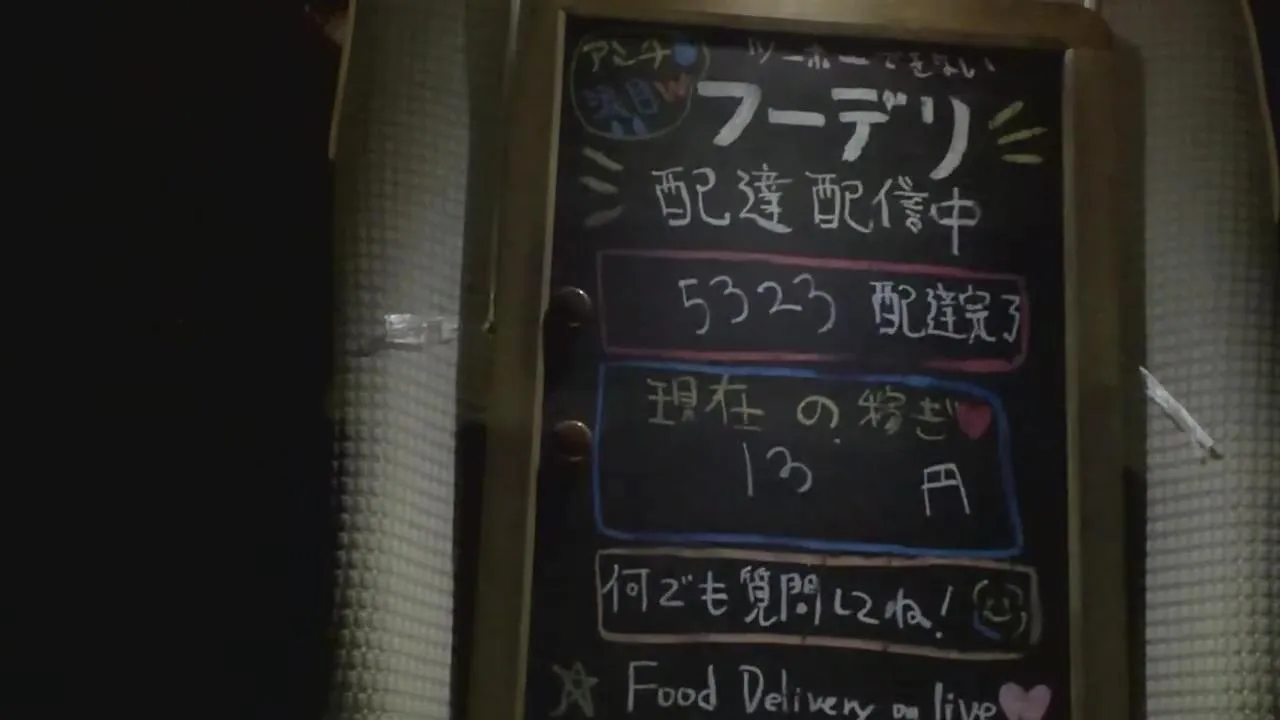 アンチ
ツーホーできない
フーデリ
配達配信中
5323 配達完了
現在の稼ぎ
13 円
何でも質問してね!
Food Delivery on live